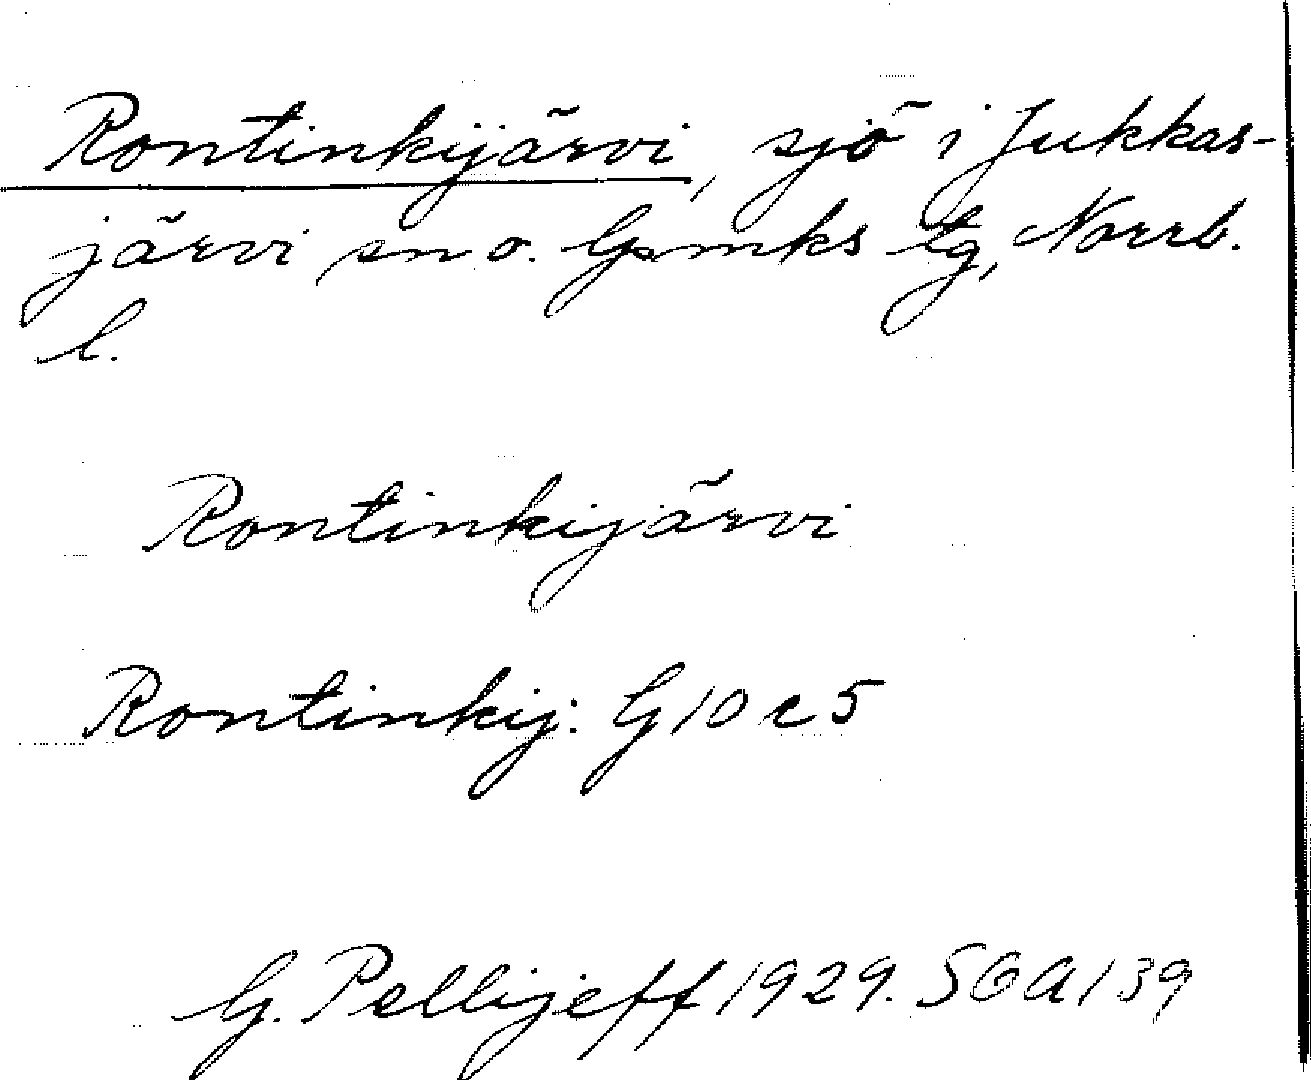 Rontinkijärvi, sjö i Jukkas-
järvi sn o. Gsmks tg, Norrb.
l.
Rontinkijärvi
Rontinkij: G10c5
G. Pellijeff 1929. SOA139